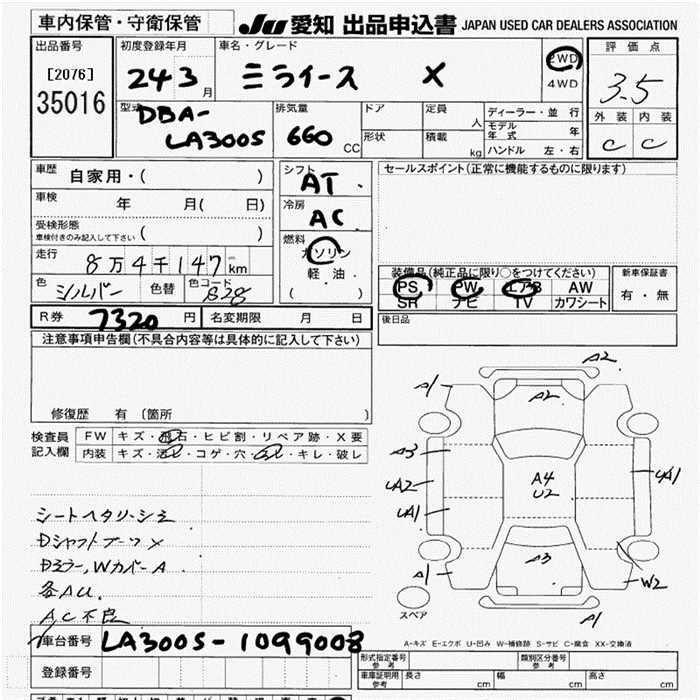 車内保管・守衛保管
JU 愛知 出品申込書 JAPAN USED CAR DEALERS ASSOCIATION
出品番号
[2076]
35016
初度登録年月
24 3 月
車名・グレード
ミライース X
2WD
4WD
評価点
3.5
外装 内装
C C
型式
DBA-
LA300S
排気量
660 CC
ドア
形状
定員 人
積載 kg
ディーラー・並行
モデル年式 年
ハンドル 左・右
車歴
自家用・( )
車検 年 月( 日)
受検形態
車検付きのみ記入して下さい ( )
走行 8万4千147km
色 シルバー 色替 色コード S28
シフト
AT
冷房
AC
燃料
ガソリン
軽油
( )
セールスポイント(正常に機能するものに限ります)
装備品(純正品に限り○をつけてください)
PS PW エアB AW
SR ナビ TV カワシート
新車保証書
有・無
後日品
R券 7320 円 名変期限 月 日
注意事項申告欄(不具合内容等は具体的に記入して下さい)
修復歴 有 (箇所 )
検査員記入欄
FW キズ・飛石・ヒビ割・リペア跡・X要
内装 キズ・汚レ・コゲ・穴・スレ・キレ・破レ
シートヘタリ・シミ
Dシャフトブーツ×
Dミラー,WカバーA
各AU
AC不良
A2
A1
A2
A3
UA2
UA1
A4
U2
UA1
A3
A1
W2
A1
スペア
A-キズ E-エクボ U-凹み W-補修跡 S-サビ C-腐食 XX-交換済
車台番号 LA300S-1099008
登録番号
形式指定番号 参考
類別区分番号 参考
車庫証明用 参考 長さ cm 幅 cm 高さ cm